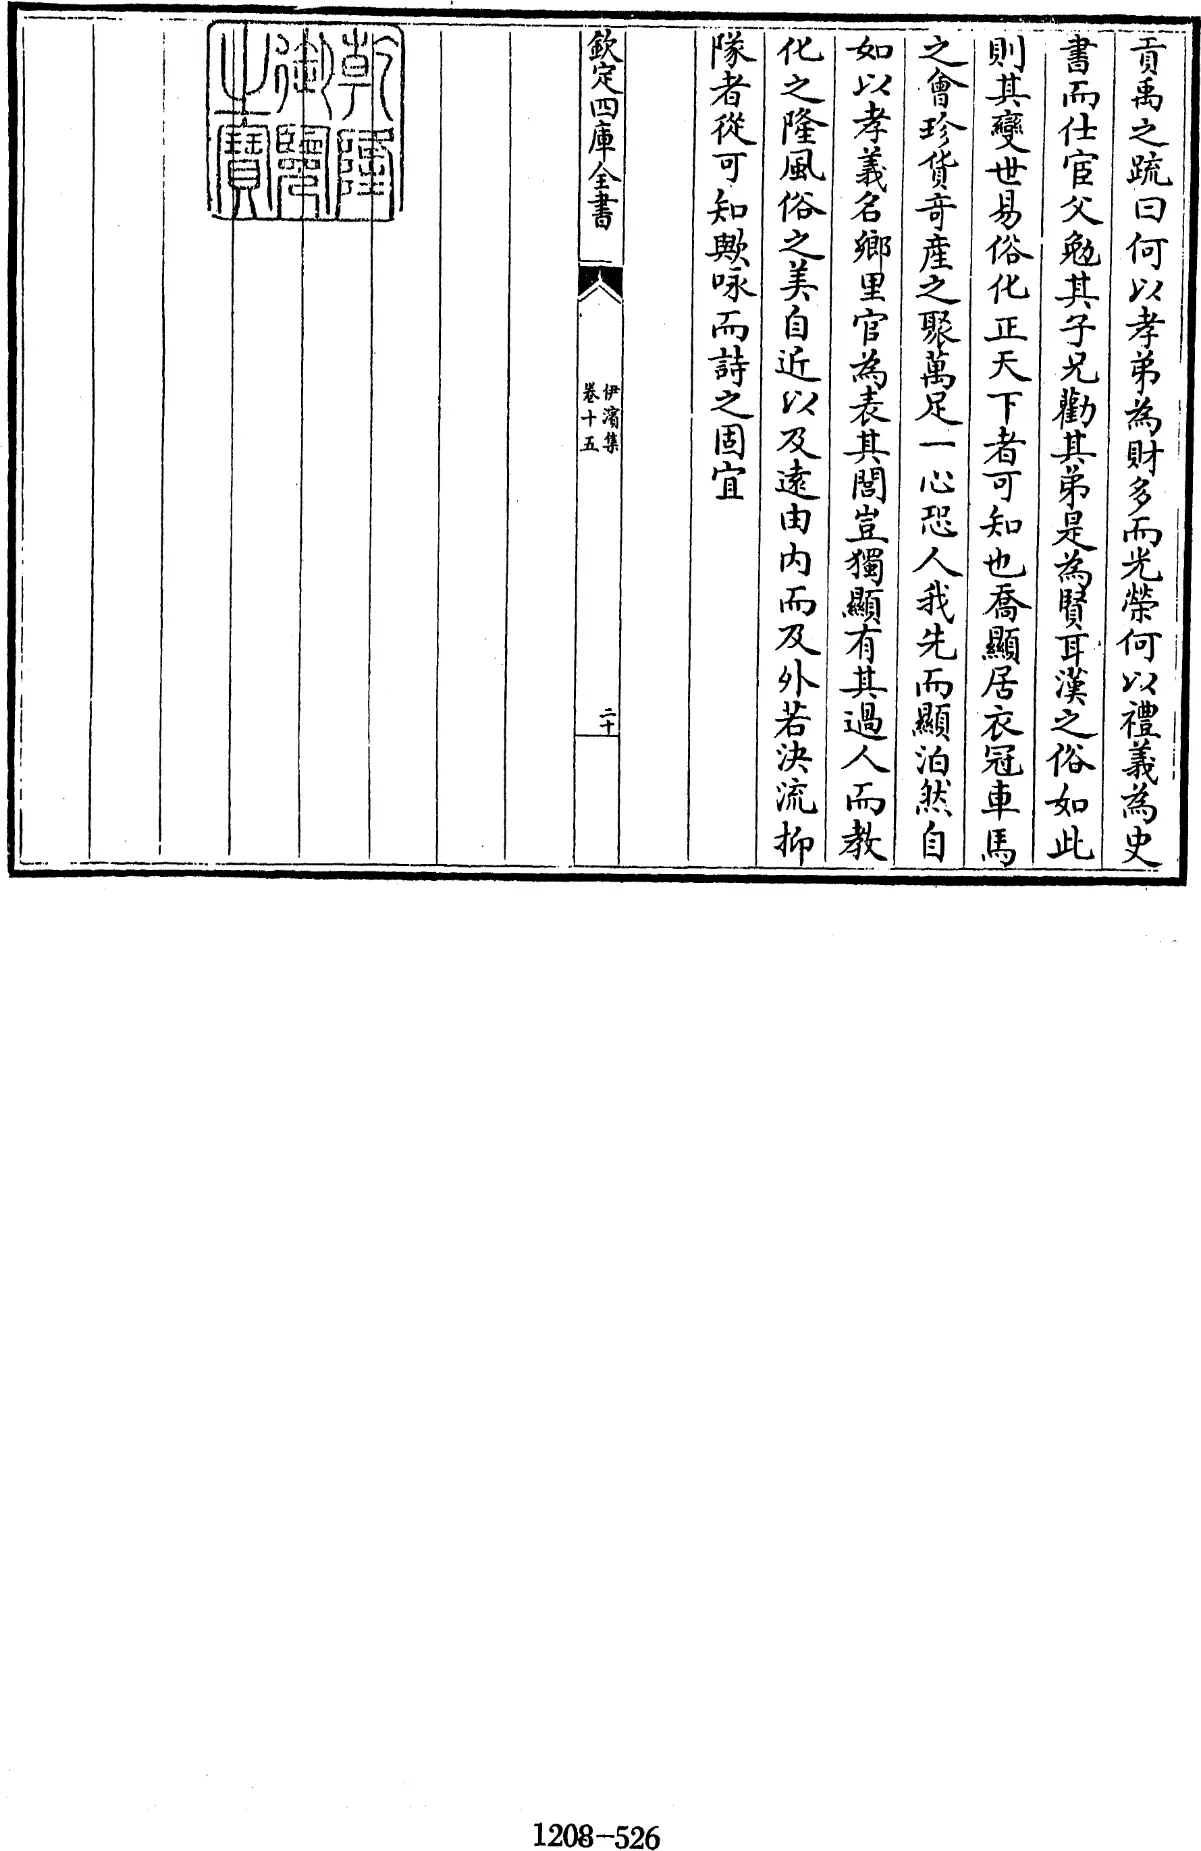 貢禹之疏曰何以孝弟為財多而光榮何以禮義為史
書而仕宦父勉其子兄勸其弟是為賢耳漢之俗如此
則其變世易俗化正天下者可知也喬顯居衣冠車馬
之會珍貨奇產之聚萬足一心恐人我先而顯泊然自
如以孝義名鄉里官為表其閭豈獨顯有其過人而教
化之隆風俗之美自近以及遠由内而及外若決流抑
隊者從可知歟咏而詩之固宜
欽定四庫全書
伊濱集
卷十五
二十
乾隆
御覽
之寶
1208-526